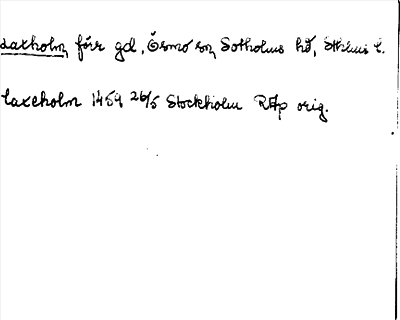 Laxholm, förr gd, Ösmo sn, Sotholms hd, Sthlms l.
laxeholm 1459 26/5 Stockholm RAp orig.